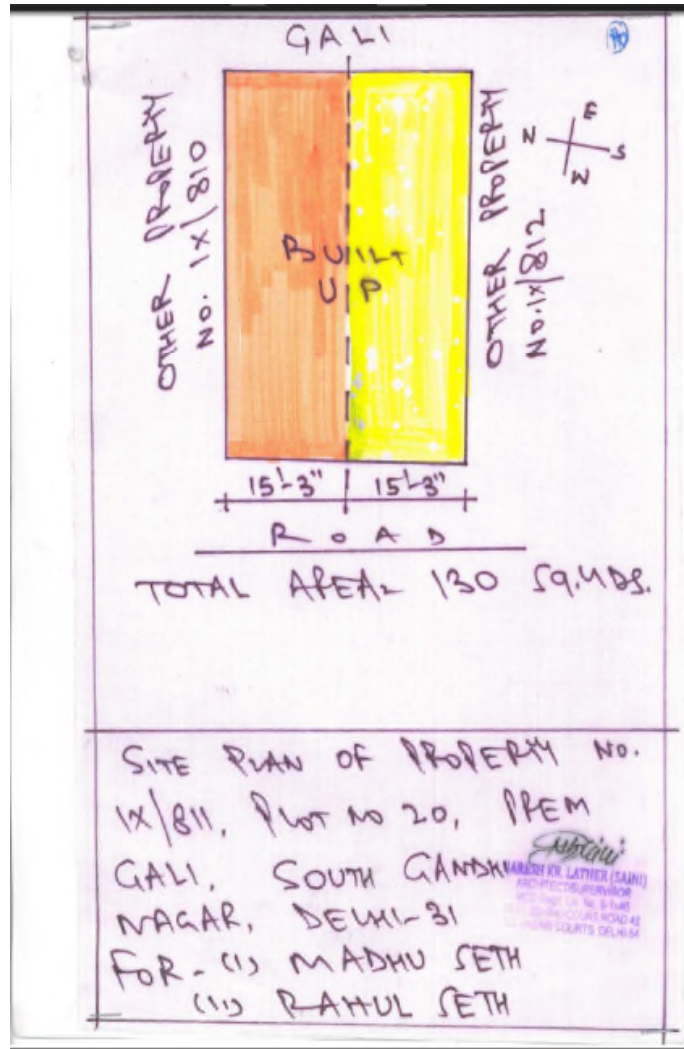 GALI
OTHER PROPERTY
NO. IX/810
BUILT
UP
OTHER PROPERTY
NO.IX/812
E
N
S
W
15'-3" 15'-3"
ROAD
TOTAL AREA= 130 SQ.YDS.
SITE PLAN OF PROPERTY NO.
IX/811, PLOT NO 20, PREM
GALI, SOUTH GANDHI
NAGAR, DELHI-31
FOR - (I) MADHU SETH
(II) RAHUL SETH
NARESH KR. LATHER (SAINI)
ARCHITECT/SUPERVISOR